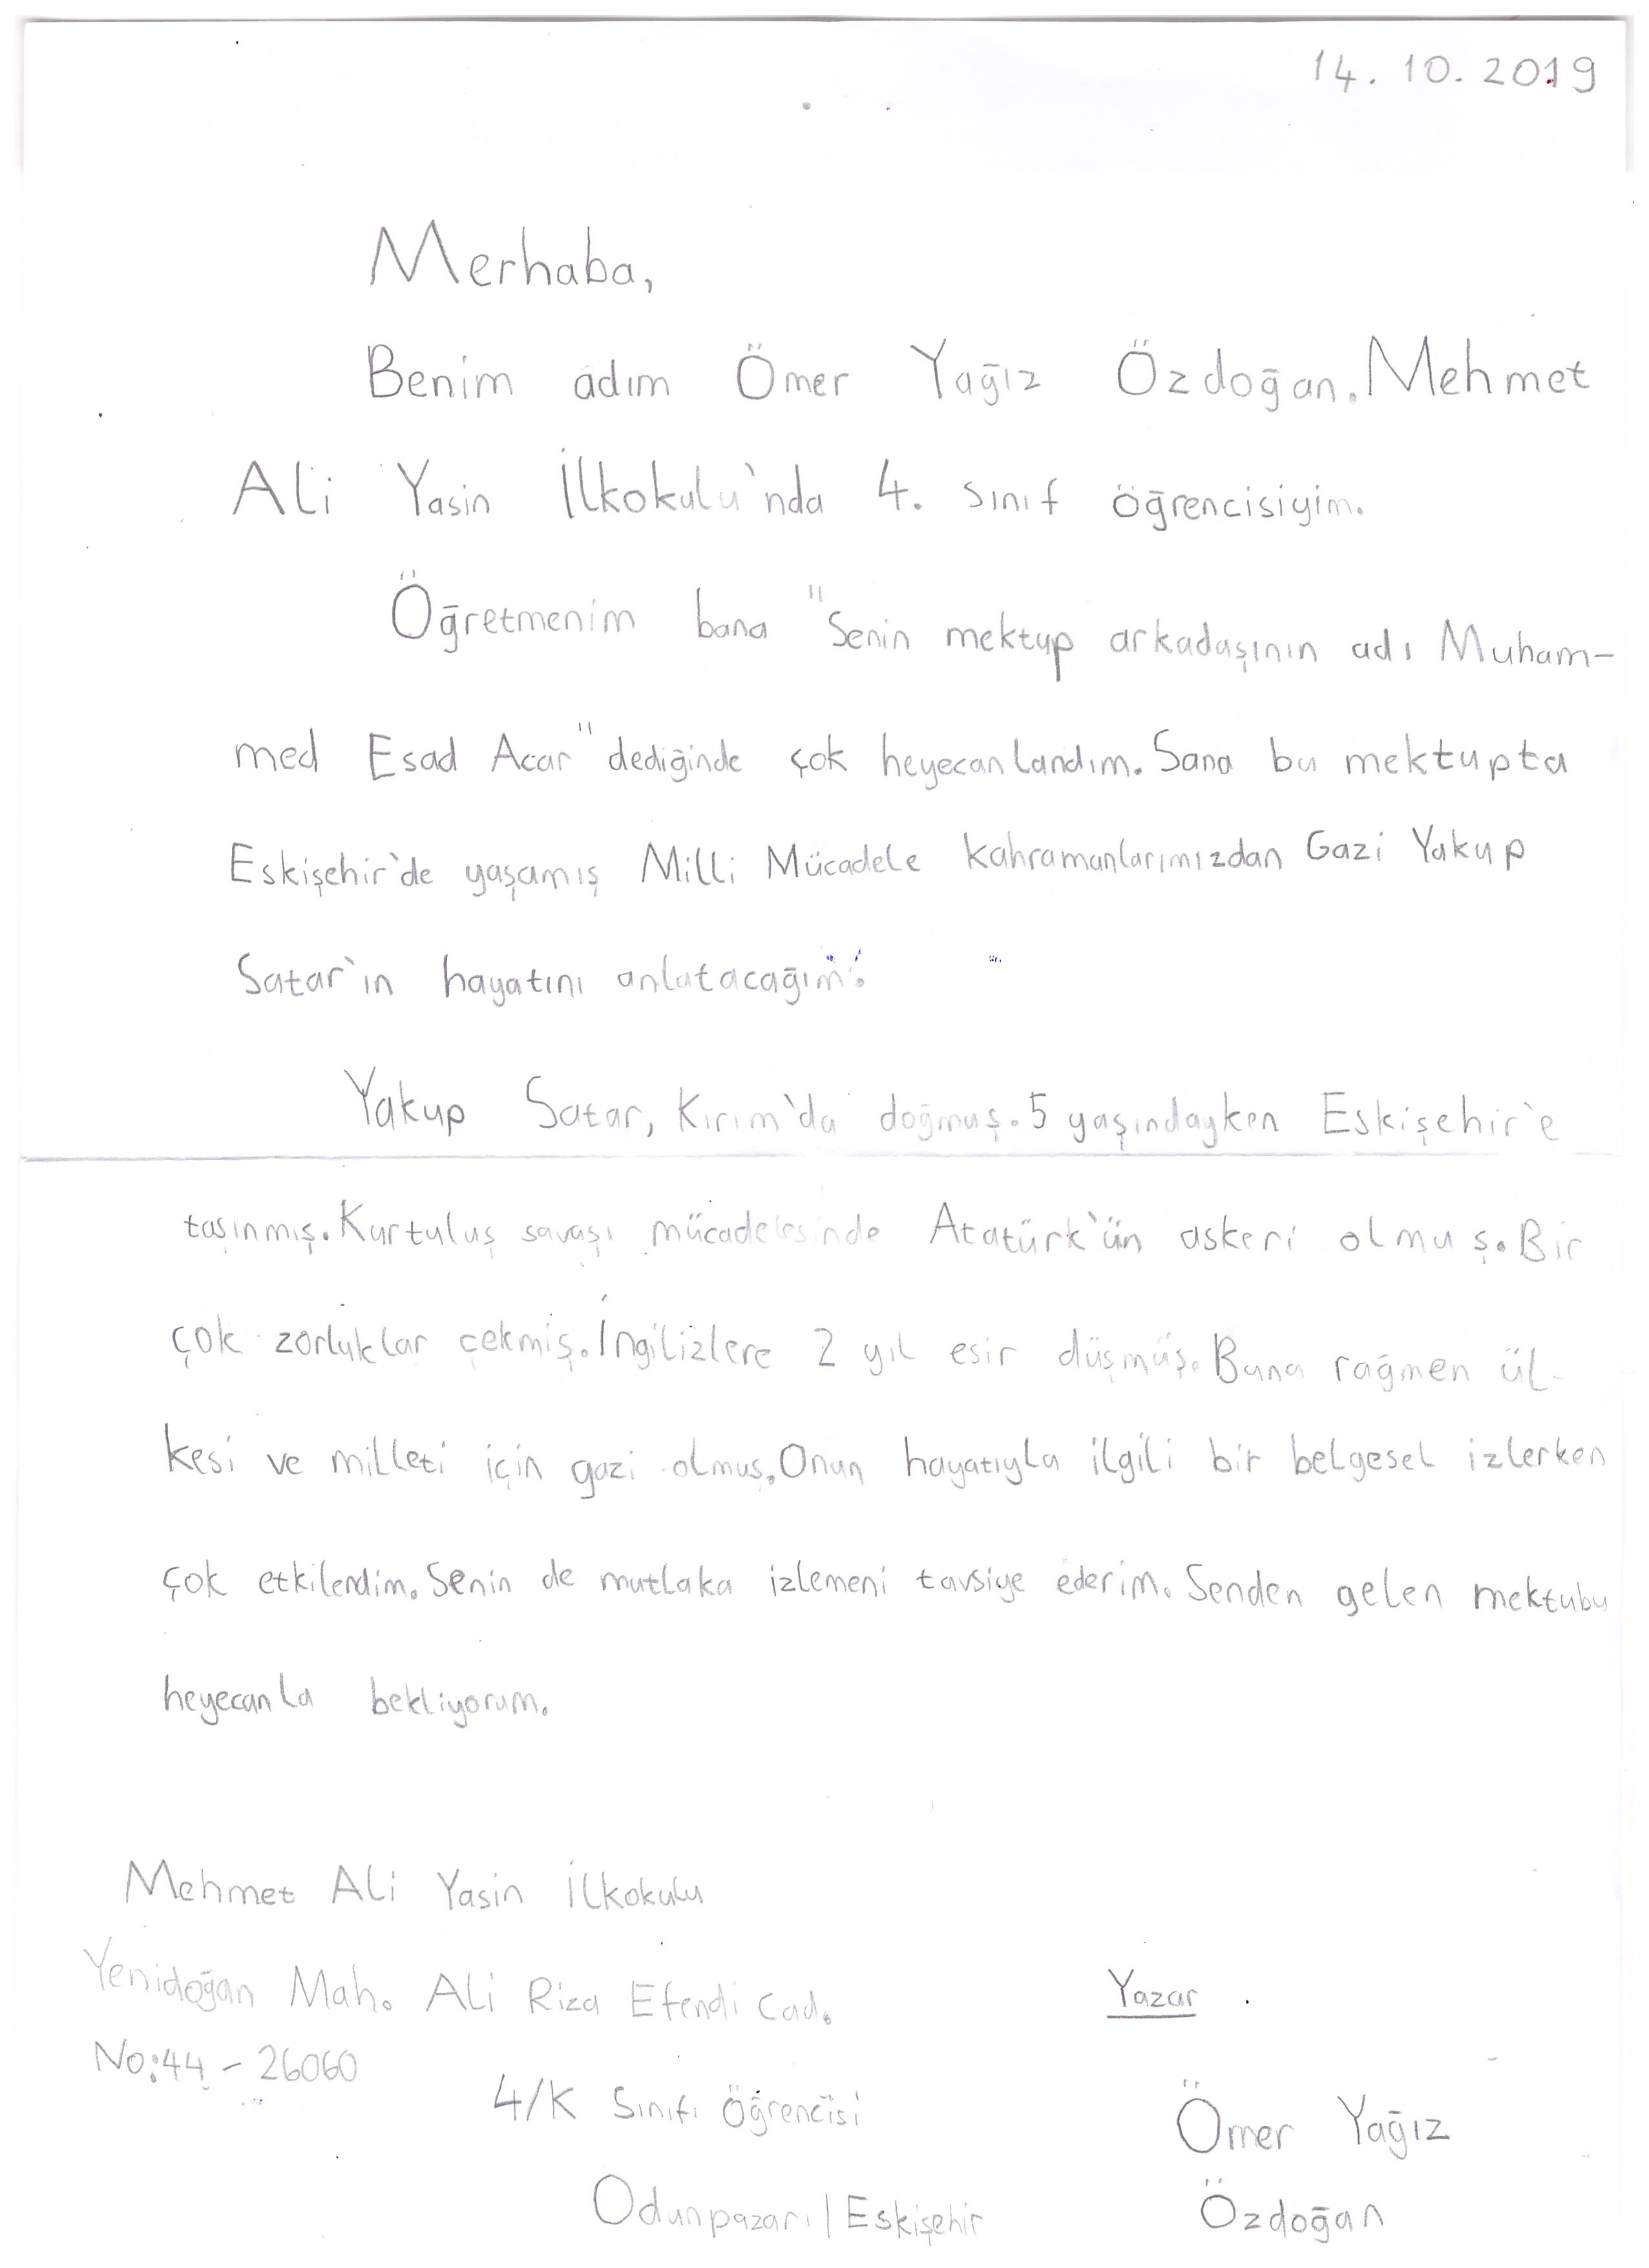 14. 10. 2019
Merhaba,
Benim adım Ömer Yağız Özdoğan. Mehmet
Ali Yasin İlkokulu'nda 4. sınıf öğrencisiyim.
Öğretmenim bana "Senin mektup arkadaşının adı Muham-
med Esad Acar" dediğinde çok heyecanlandım. Sana bu mektupta
Eskişehir'de yaşamış Milli Mücadele kahramanlarımızdan Gazi Yakup
Satar'ın hayatını anlatacağım.
Yakup Satar, Kırım'da doğmuş. 5 yaşındayken Eskişehir'e
taşınmış. Kurtuluş savaşı mücadelesinde Atatürk'ün askeri olmuş. Bir
çok zorluklar çekmiş. İngilizlere 2 yıl esir düşmüş. Buna rağmen ül-
kesi ve milleti için gazi olmuş. Onun hayatıyla ilgili bir belgesel izlerken
çok etkilendim. Senin de mutlaka izlemeni tavsiye ederim. Senden gelen mektubu
heyecanla bekliyorum.
Mehmet Ali Yasin İlkokulu
Yenidoğan Mah. Ali Rıza Efendi Cad.
No:44 - 26060
4/K Sınıfı Öğrencisi
Odunpazarı | Eskişehir
Yazar
Ömer Yağız
Özdoğan